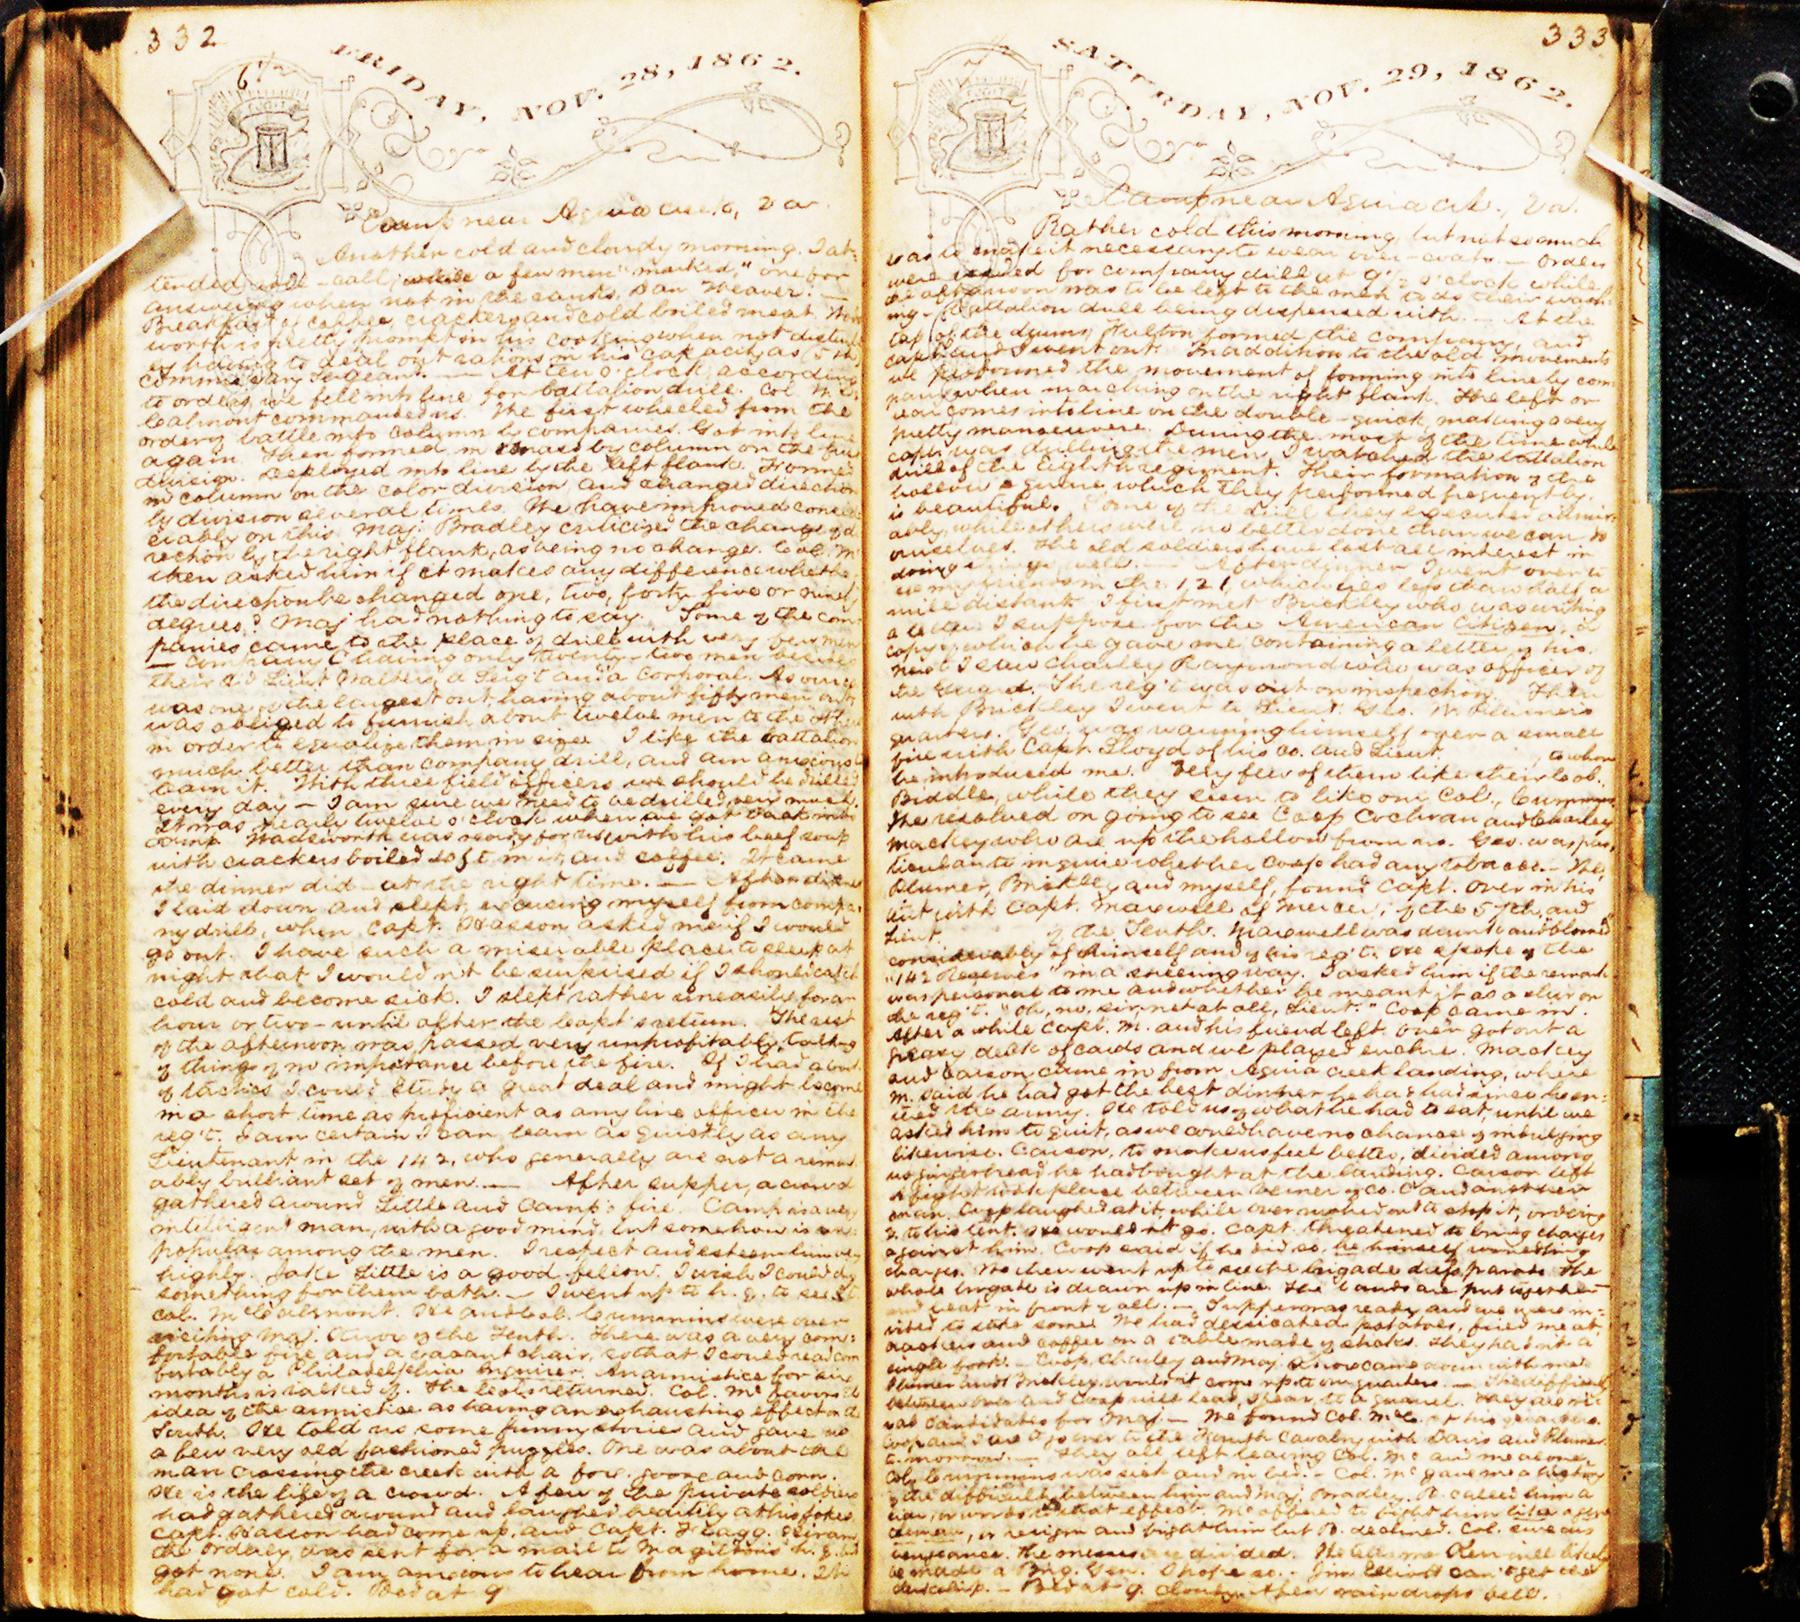 332
FRIDAY, NOV. 28, 1862.
Camp near Aquia creek, Va.
Another cold and cloudy morning. I at-
tended roll-call, while a few men "marked," one for
answering when not in the ranks, Dan Weaver. —
Breakfast of coffee, crackers and cold boiled meat.
worth is pretty prompt in his cooking when not disturbed
by having to deal out rations in his capacity as 5th
Commissary Sergeant. — At ten o'clock, according
to orders, we fell into line for battalion drill. Col. Mc-
Calmont commanded us. We first wheeled from the
order of battle into column by companies. Got into line
again. Then formed in mass by column on the
division. Deployed into line by the left flank. Formed
in column on the color division and changed direction
by division several times. We have improved consid-
erably on this. Maj. Bradley criticized the change of di
rection by the right flank, as being no change. Col. Mc
then asked him if it makes any difference whether
the direction be changed one, two, forty five or ninety
degrees? Maj had nothing to say. Some of the com
panies came to the place of drill with very few men
— Company C having only twenty-two men besides
their 2d Lieut Walters, a Serg't and a Corporal. As ours
was one of the largest out, having about fifty men out,
was obliged to furnish about twelve men to the others
in order to equalize them in size. I like the battalion
much better than company drill, and am anxious to
learn it. With three field officers we should be drilled
every day — I am sure we need to be drilled very much.
It was nearly twelve o'clock when we got back into
camp. Wadsworth was ready for us with his beef soup
with crackers boiled soft in it, and coffee. It came
the dinner did — at the right time. — After dinner
I laid down and slept, excusing myself from compa-
ny drill, when Capt. Hasson asked me if I would
go out. I have such a miserable place to sleep at
night that I wouldn't be surprised if I should catch
cold and become sick. I slept rather uneasily for an
hour or two — until after the Capt's return. The rest
of the afternoon was passed very unprofitably, talking
of things of no importance before the fire. If I had a book
of tactics I could study a great deal and might become
in a short time as proficient as any line officer in the
reg't. I am certain I can learn as quickly as any
Lieutenant in the 142, who generally are not a remark
ably brilliant set of men. — After supper, a crowd
gathered around Little and Camp's fire. Camp is a very
intelligent man, with a good mind, but somehow is un-
popular among the men. I respect and esteem him very
highly. Jake Little is a good fellow. I wish I could do
something for them both. — I went up to h. q. to see Lt.
Col. McCalmont. He and Col. Cummins were over
visiting Maj. of the Tenth. There was a very com-
fortable fire and a vacant chair, so that I could read com
fortably a Philadelphia Inquirer. An armistice for six
months is talked of. The Cols returned. Col. Mc favors the
idea of the armistice as having an exhausting effect on the
South. He told us some funny stories and gave us
a few very old fashioned puzzles. One was about the
man crossing the creek with a fox, goose and corn.
He is the life of a crowd. A few of the private soldiers
had gathered around and laughed heartily at his jokes.
Capt. Hasson had come up, and Capt. Flagg. Hiram,
the orderly, was sent for a mail to Magilton's h. q. but
got none. I am anxious to hear from home. It
had got cold. Bed at 9
333
SATURDAY, NOV. 29, 1862.
Camp near Aquia ck., Va.
Rather cold this morning, but not so much
was it necessary to wear over-coats. — Orders
were issued for company drill at 9 1/2 o'clock while
the afternoon was to be left to the men to do their wash-
ing — battalion drill being dispensed with. — At the
tap of the drums, Fulton formed the company, and
Capt and I went out. In addition to the old movements
we performed the movement of forming into line by com
pany when marching on the right flank. The left or
rear comes into line on the double-quick, making a very
pretty manoeuvre. During the most of the time while
Capt. was drilling the men, I watched the battalion
drill of the Eighth regiment. Their formation of the
hollow square which they performed frequently,
is beautiful. Some of the drill they executed admir-
ably, while others were no better done than we can do
ourselves. The old soldiers have lost all interest in
doing well. — After dinner I went over to
see my friends in the 121 which lies less than half a
mile distant. I first met Brickley who was writing
a letter I suppose for the American Citizen, a
copy of which he gave me containing a letter of his.
Next I saw Charley Raymond who was officer of
the Guard. The reg't was out on inspection. Then
with Brickley I went to Lieut. Geo. W. Plumer's
quarters. Geo. was warming himself over a small
fire with Capt. Lloyd of his co. and Lieut. , to whom
he introduced me. Very few of them like their Col.
Biddle, while they seem to like our Col., Cummins.
We resolved on going to see Coop Cochran and Charley
Mackey who are up the hollow from us. Geo. was par-
ticular to inquire whether Coop had any tobacco. — We,
Plumer, Brickley and myself, found Capt. Over in his
tent with Capt. Maxwell of Mercer, of the 57th, and
Lieut. of the Tenth. Maxwell was drunk and blowed
considerably of himself and of his reg't. He spoke of the
"142 Reserves" in a sneering way. I asked him if the remark
was personal to me and whether he meant it as a slur on
the reg't. "Oh, no, sir, not at all, Lieut." Coop came in.
After a while Capt. M. and his friend left. Over got out a
greasy deck of cards and we played euchre. Mackey
and Carson came in from Aquia creek landing, where
M. said he had got the best dinner he has had since he en-
tered the army. He told us of what he had to eat, until we
asked him to quit, as we could have no chance of indulging
likewise. Carson, to make us feel better, divided among
us gingerbread he had bought at the landing. Carson left
A fight took place between of co. C and another
man. Coop laughed at it, while Over rushed out to stop it, ordering
to his tent. He wouldn't go. Capt. threatened to bring charges
against him. Coop said if he did so, he himself would bring
charges. We then went up to see the brigade dress parade. The
whole brigade is drawn up in line. The bands are put together
and beat in front of all. — Supper was ready and we were in-
vited to take some. We had dessicated potatoes, fried meat,
crackers and coffee on a table made of sticks. They hadn't a
single fork. — Coop, Charley and Maj. Snow came down with me.
Plumer and Brickley wouldn't come up to our quarters. — The difficulty
between Over and Coop will lead, I fear, to a quarrel. They are ri-
val candidates for Maj. — We found Col. McC. at his quarters.
Coop and I are to go over to the Fourth Cavalry, with Davis and Plumer
to-morrow. — They all left leaving Col. Mc and me alone.
Col. Cummins was sick and in bed. — Col. Mc gave me a history
of the difficulty between him and Maj. Bradley. B. called him a
liar, or words to that effect. Mc offered to fight him like a gen
tleman, or resign and fight him but B. declined. Col. swears
vengeance. The messes are divided. He tells me Ren will likely
be made a Brig. Gen. I hope so. — Jim Elliott can't get the
— Bed at 9. Cloudy. A few raindrops fell.